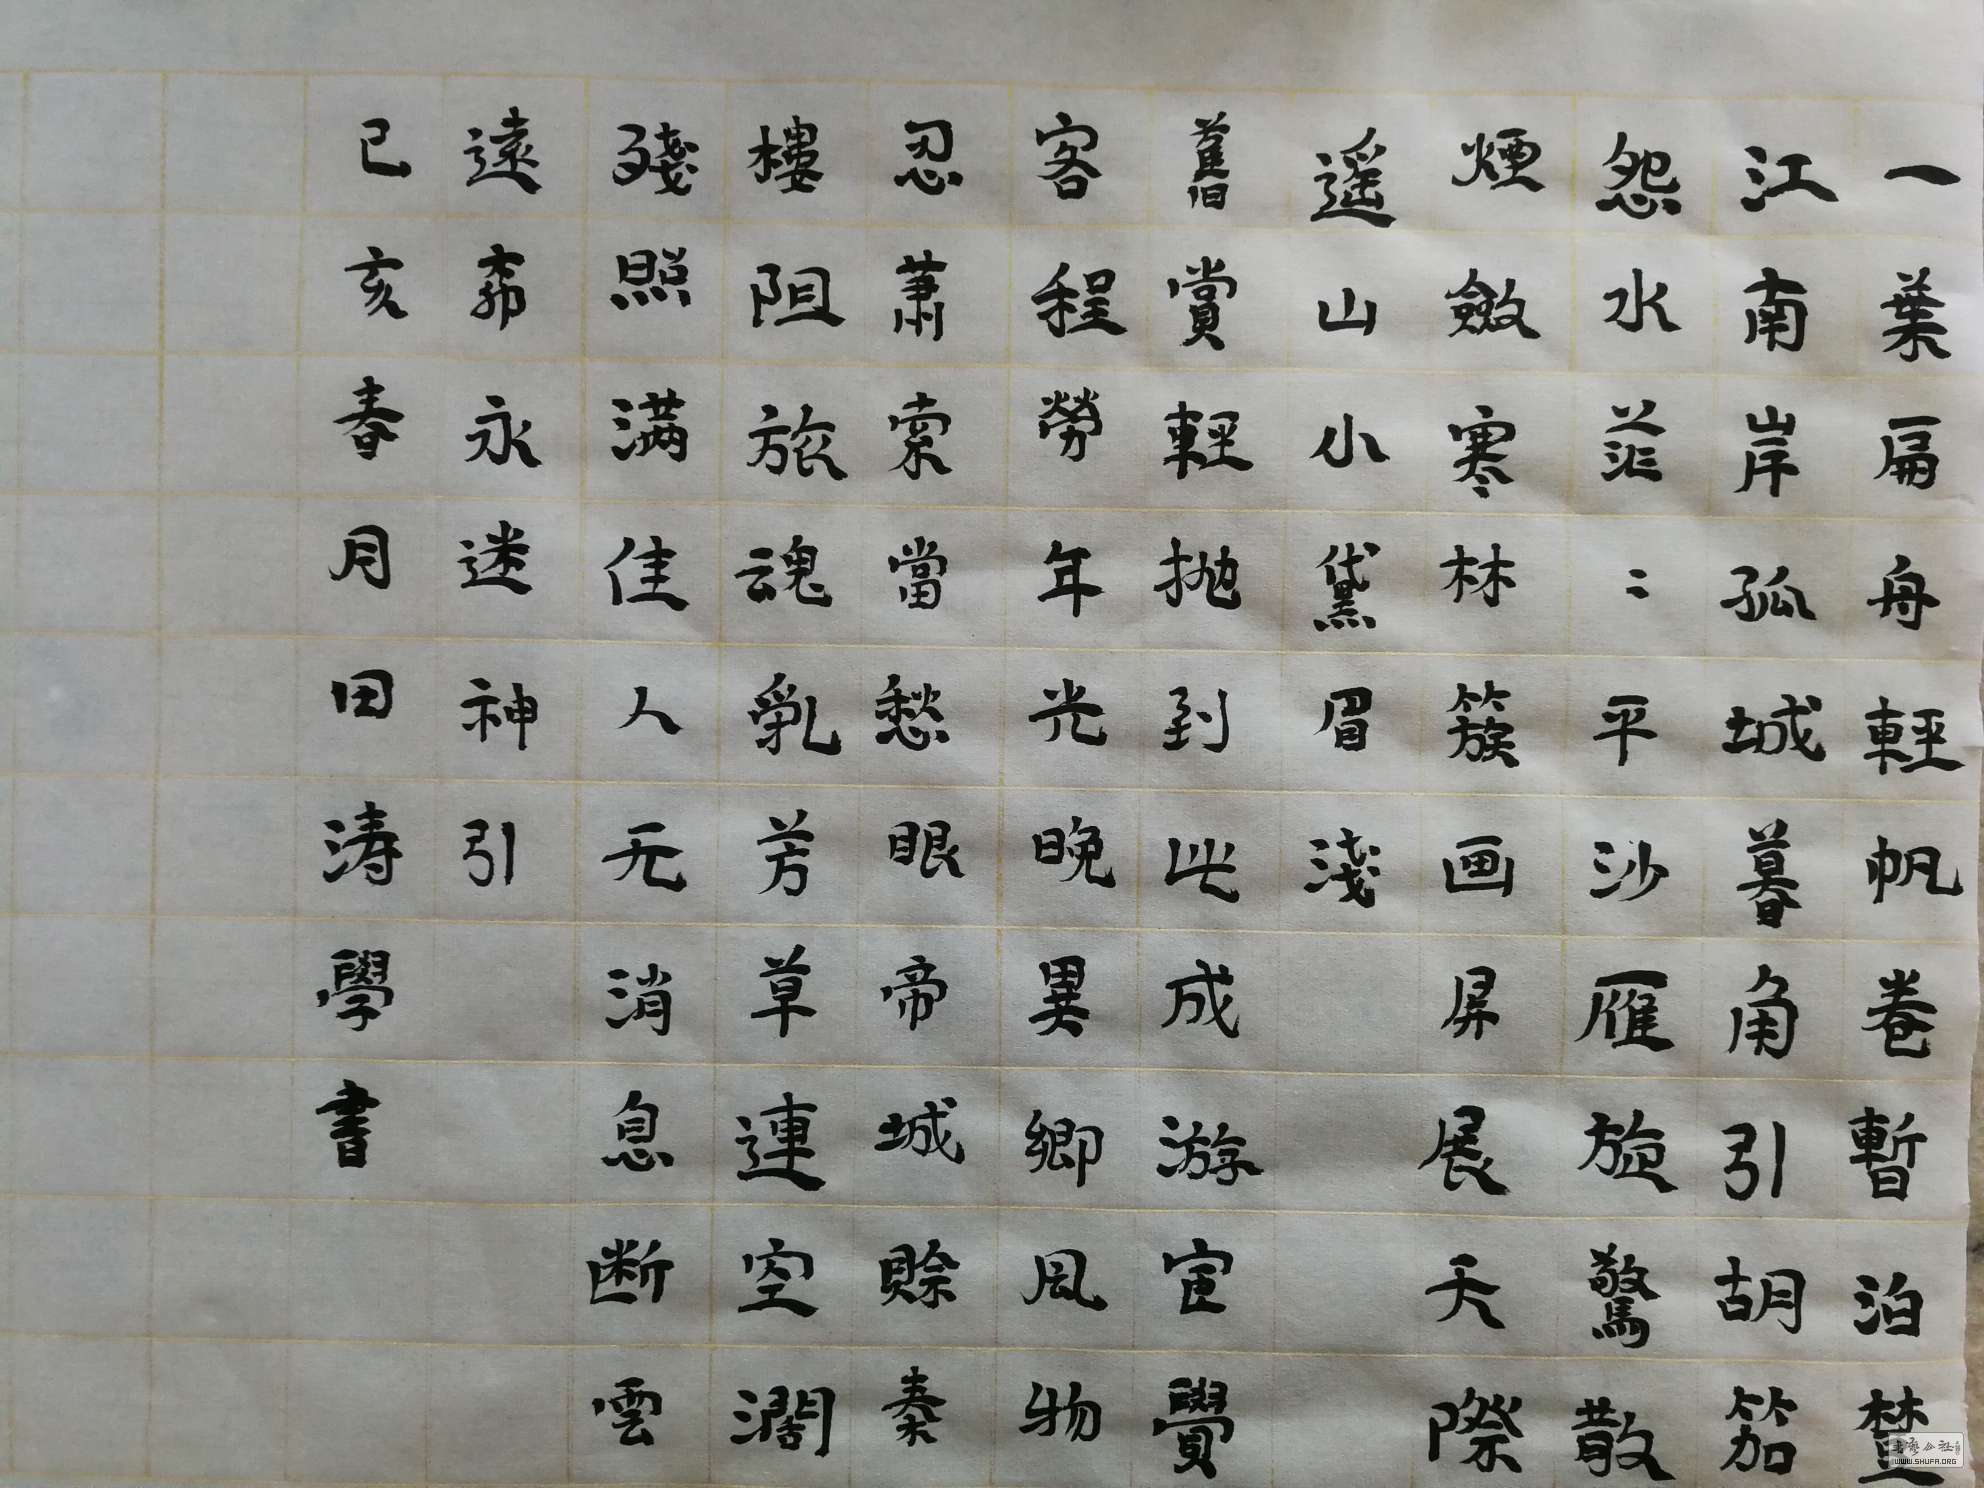 一葉扁舟輕帆卷暫泊楚
江南岸孤城暮角引胡笳
怨水茫〻平沙雁旋驚散
煙斂寒林簇画屏展天際
遥山小黛眉淺
舊賞輕抛到此成游宦覺
客程勞年光晚異鄉風物
忍蕭索當愁眼帝城賒秦
樓阻旅魂亂芳草連空濶
殘照满佳人无消息断雲
遠柳永迷神引
己亥春月田涛學書
WWW.SHUFA.ORG